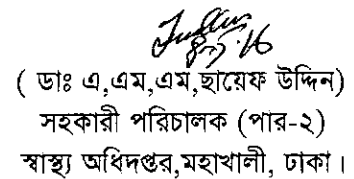 8-5-16
( ডাঃ এ,এম,এম,ছায়েফ উদ্দিন)
সহকারী পরিচালক (পার-২)
স্বাস্থ্য অধিদপ্তর,মহাখালী, ঢাকা।